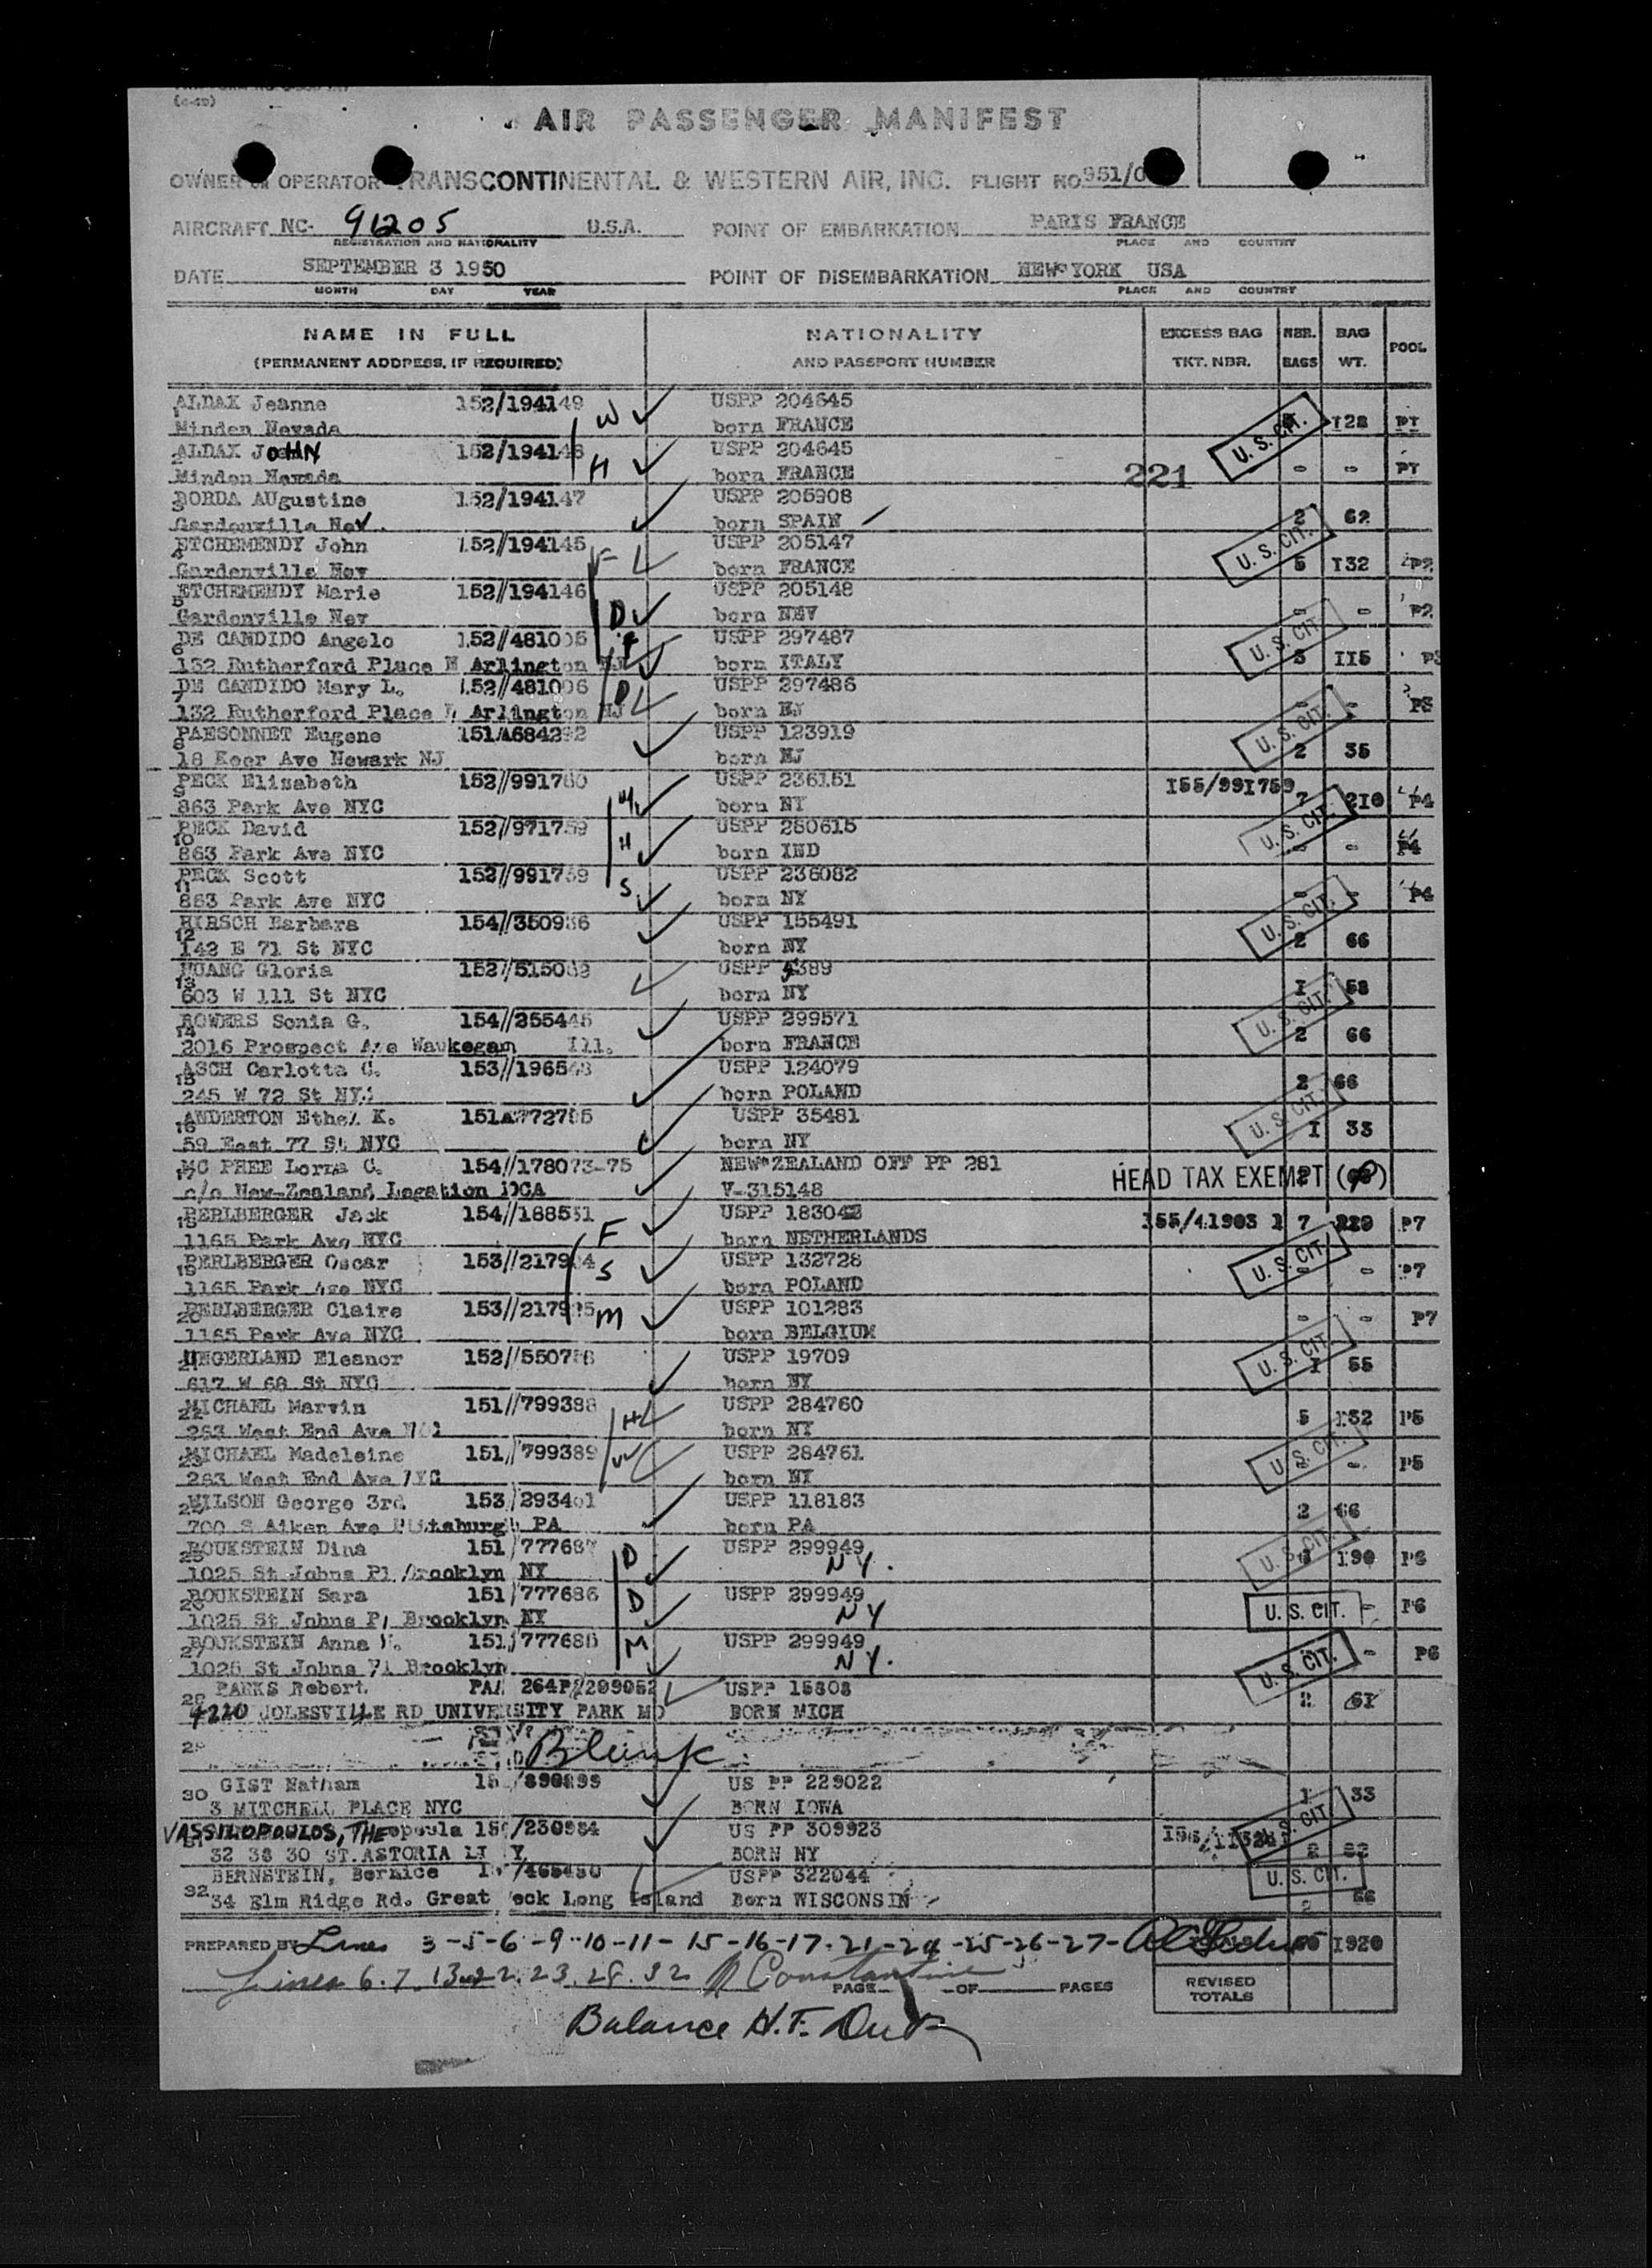 (4-49)
AIR PASSENGER MANIFEST
OWNER OR OPERATOR TRANSCONTINENTAL & WESTERN AIR, INC. FLIGHT NO 951/0
AIRCRAFT NC- 91205 U.S.A. POINT OF EMBARKATION PARIS FRANCE
REGISTRATION AND NATIONALITY PLACE AND COUNTRY
DATE SEPTEMBER 3 1950 POINT OF DISEMBARKATION NEW YORK USA
MONTH DAY YEAR PLACE AND COUNTRY
NAME IN FULL NATIONALITY EXCESS BAG NBR. BAG POOL
(PERMANENT ADDRESS, IF REQUIRED) AND PASSPORT NUMBER TKT. NBR. BAGS WT.
1 ALDAX Jeanne 152/194149 W USPP 204645
Minden Nevada born FRANCE U.S. CIT. 128 P1
2 ALDAX JOHN 152/194148 H USPP 204645
Minden Nevada born FRANCE 221 - - P1
3 BORDA AUgustine 152/194147 USPP 205908
Gardenville Nev. born SPAIN 2 62
4 ETCHEMENDY John 152/194145 F USPP 205147 U.S. CIT.
Gardenville Nev born FRANCE 5 132 P2
5 ETCHEMENDY Marie 152/194146 D USPP 205148
Gardenville Nev born NEV - - P2
6 DE CANDIDO Angelo 152//481005 F USPP 297487 U.S. CIT.
132 Rutherford Place N Arlington NJ born ITALY 3 115 P3
7 DE CANDIDO Mary L. 152//481006 D USPP 297486
132 Rutherford Place N Arlington NJ born NJ - - P3
8 PAESONNET Eugene 151A684292 USPP 123919 U.S. CIT.
18 Keer Ave Newark NJ born NJ 2 35
9 PECK Elizabeth 152//991760 W USPP 236151 155/991759
863 Park Ave NYC born NY 7 210 P4
10 PECK David 152//971759 H USPP 280615 U.S. CIT.
863 Park Ave NYC born IND - - P4
11 PECK Scott 152//991759 S USPP 236082
863 Park Ave NYC born NY - - P4
12 HIRSCH Barbara 154//350936 USPP 155491 U.S. CIT.
142 E 71 St NYC born NY 2 66
13 HUANG Gloria 152//515082 USPP 5389
603 W 111 St NYC born NY 1 58
14 BOWERS Sonia G. 154//255445 USPP 299571 U.S. CIT.
2016 Prospect Ave Waukegan Ill. born FRANCE 2 66
15 ASCH Carlotta C. 153//196543 USPP 124079
245 W 72 St NYC born POLAND 2 66
16 ANDERTON Ethel K. 151A772795 USPP 35481 U.S. CIT.
59 East 77 St NYC born NY 1 33
17 MC PHEE Lorna C. 154//178073-75 NEW ZEALAND OFF PP 281
c/o New-Zealand Legation DCA V-315148 HEAD TAX EXEMPT
18 PERLBERGER Jack 154//188531 F USPP 183043 155/41903 1 7 220 P7
1165 Park Ave NYC born NETHERLANDS
19 PERLBERGER Oscar 153//217984 S USPP 132728 U.S. CIT. - - P7
1165 Park Ave NYC born POLAND
20 PERLBERGER Claire 153//217985 M USPP 101283 - - P7
1165 Park Ave NYC born BELGIUM
21 UNGERLAND Eleanor 152//550788 USPP 19709 U.S. CIT. 1 55
617 W 68 St NYC born NY
22 MICHAEL Marvin 151//799388 H USPP 284760 5 132 P5
263 West End Ave NYC born NY
23 MICHAEL Madeleine 151//799389 W USPP 284761 U.S. CIT. - - P5
263 West End Ave NYC born NY
24 WILSON George 3rd. 153/293401 USPP 118183 2 66
700 S Aiken Ave Pittsburgh PA born PA
25 BOUKSTEIN Dina 151/777687 D USPP 299949 U.S. CIT. 190 P6
1025 St Johns Pl Brooklyn NY NY.
26 BOUKSTEIN Sara 151/777686 D USPP 299949 U.S. CIT. - P6
1025 St Johns Pl Brooklyn NY NY
27 BOUKSTEIN Anna 151/777685 M USPP 299949 - P6
1025 St Johns Pl Brooklyn NY. U.S. CIT.
28 PARKS Robert. PAA 264P//299052 USPP 15808
4220 JOLESVILLE RD UNIVERSITY PARK MD BORN MICH 2 61
29 Blank
30 GIST Nathan /890899 US PP 229022 1 33
3 MITCHELL PLACE NYC BORN IOWA
31 VASSILOPOULOS, THEopoula /230984 US PP 309923 U.S. CIT.
32 38 30 ST. ASTORIA LI NY BORN NY 2 82
32 BERNSTEIN, Bernice /465480 USPP 322044 U.S. CIT.
34 Elm Ridge Rd. Great Neck Long Island Born WISCONSIN 2 66
PREPARED BY Lines 3-5-6-9-10-11-15-16-17-21-24-25-26-27- 1920
Lines 6.7.13.22.23.28.32 Constantine
PAGE OF PAGES REVISED TOTALS
Balance H.F.